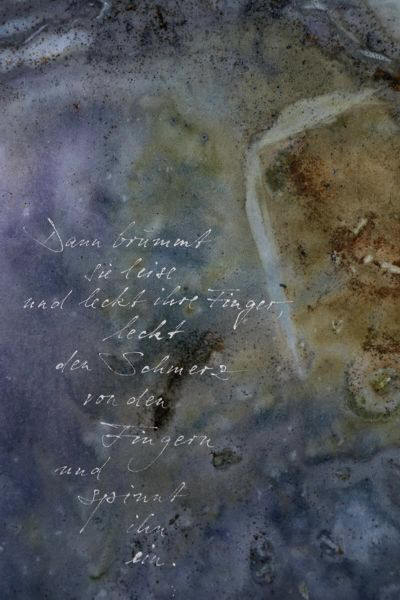 Dann brummt
sie leise
und leckt ihre Finger,
leckt
den Schmerz
von den
Fingern
und
spinnt
ihn
ein.